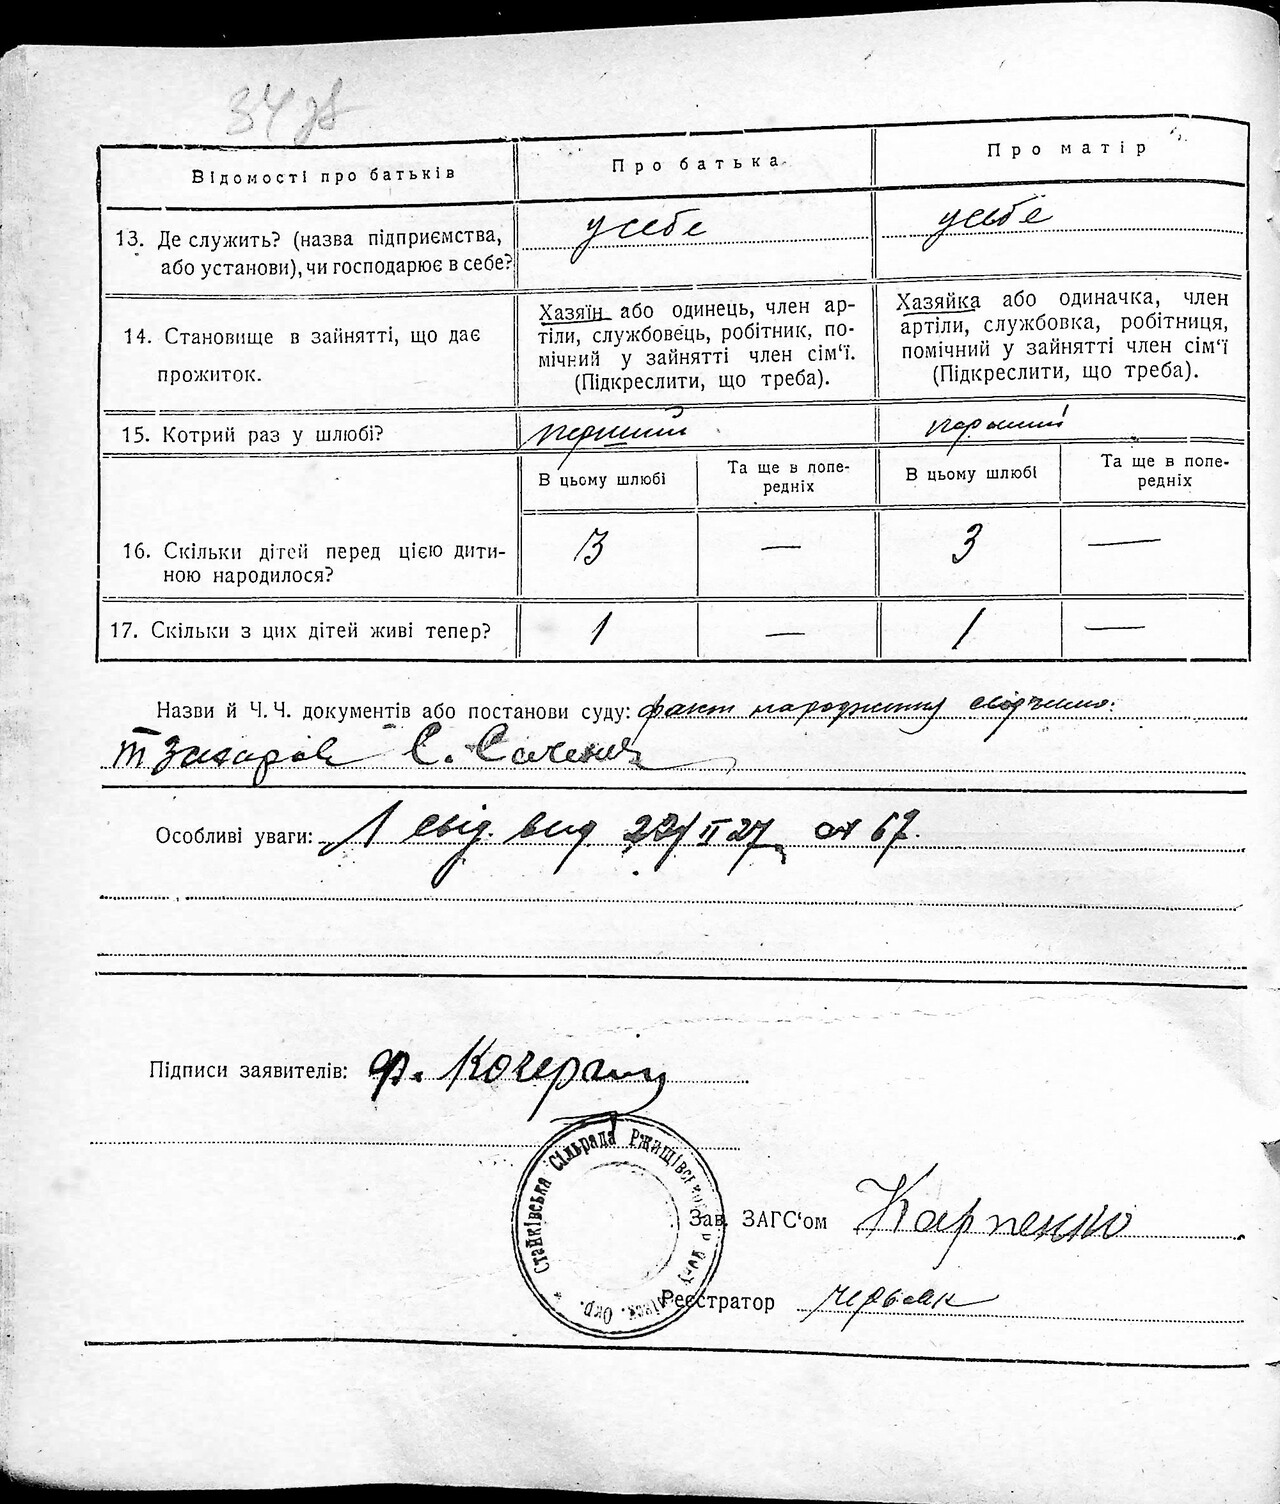 34
Відомості про батьків
Про батька
Про матір
13. Де служить? (назва підприємства,
або установи), чи господарює в себе?
у себе
у себе
14. Становище в зайнятті, що дає
прожиток.
Хазяїн або одинець, член ар-
тіли, службовець, робітник, по-
мічний у зайнятті член сім'ї.
(Підкреслити, що треба).
Хазяйка або одиначка, член
артіли, службовка, робітниця,
помічний у зайнятті член сім'ї
(Підкреслити, що треба).
15. Котрий раз у шлюбі?
перший
перший
В цьому шлюбі
Та ще в попе-
редніх
В цьому шлюбі
Та ще в попе-
редніх
16. Скільки дітей перед цією дити-
ною народилося?
3
—
3
—
17. Скільки з цих дітей живі тепер?
1
—
1
—
Назви й Ч. Ч. документів або постанови суду: факт народження свідчимо:
С.
Особливі уваги: свід. вид 22/II 27 67.
Підписи заявителів: Ф. Кочергин
Стайківська Сільрада Ржищівського
Окр.
Зав. ЗАГС'ом Карпенко
Реєстратор